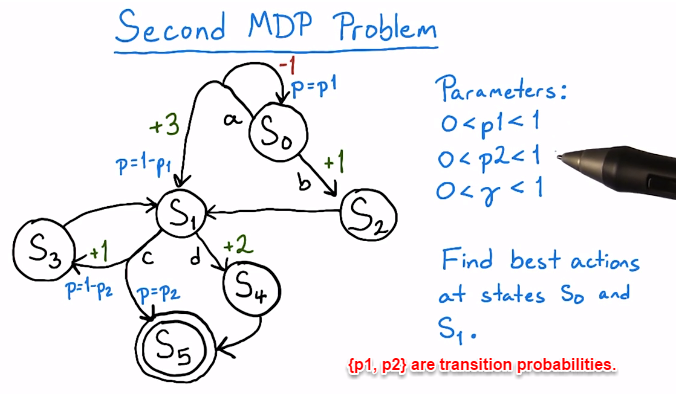 Second MDP Problem
-1
p=p1
a
S0
+3
p=1-p1
+1
b
S1
S2
S3
+1
c
d
+2
p=1-p2
p=p2
S4
S5
Parameters:
0<p1<1
0<p2<1
0<γ<1
Find best actions
at states S0 and
S1.
{p1, p2} are transition probabilities.